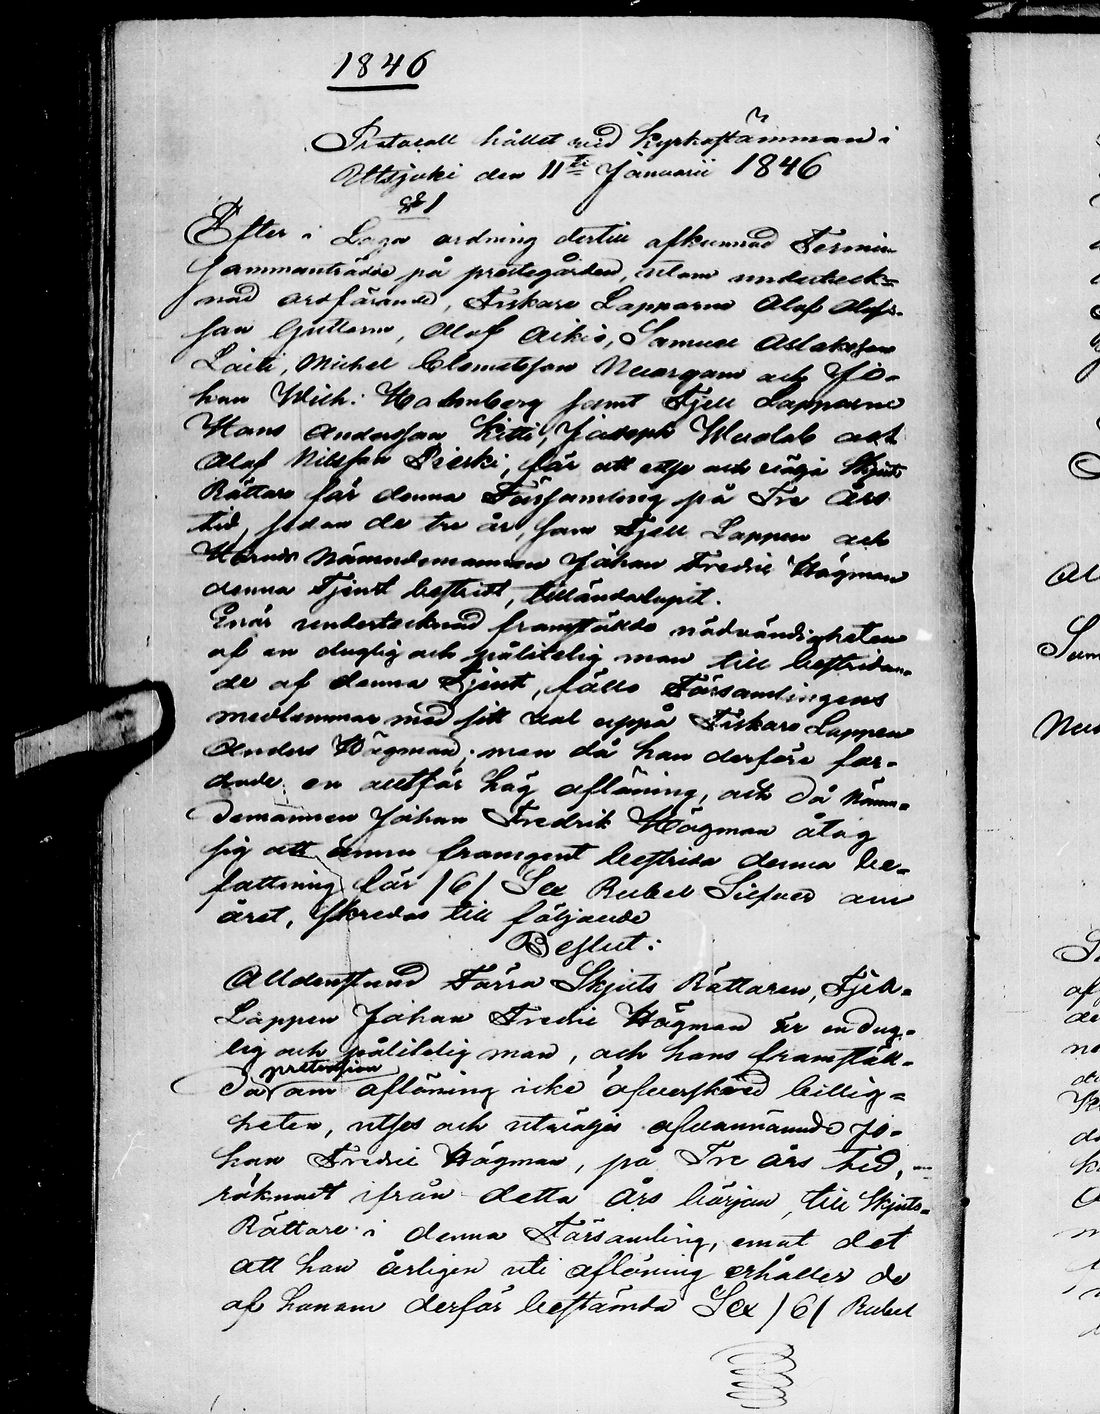 1846
Protocoll hållet vid Kyrkostämman i
Utsjoki den 11te Januarii 1846
§ 1
Efter i Laga ordning dertill afkunnad Termin
sammanträdde på prestegården, inför underteck-
nad ordförande, Fiskare Lapparne Olof Olofs-
son Guttorm, Olof Aikio, Samuel Aslaksson
Laiti, Michel Clemetsson Nuorgam och Jo-
han Wilh: Holmberg samt Fjell Lapparne
Hans Andersson Kitti, Joseph Wuolab och
Olof Nilsson Pieski, för att utse och välja Skjuts
Rättare för denna Församling på Tre års
tid, sedan de tre år, som Fjell Lappen och
Härads Nämndemannen Johan Fredric Högman
denna Tjenst bestridt, tilländalupit.
Enär undertecknad framställde nödvändigheten
af en duglig och pålitelig man till bestridan-
de af denna Tjenst, föllo Församlingens
medlemmar med sitt val uppå Fiskare Lappen
Anders Högman; men då han derföre for-
drade en alltför hög aflöning, och då Näm-
demannen Johan Fredrik Högman åtog
sig att ännu framgent bestrida denna be-
fattning för /6/ Sex Rubel Silfver om
året, skreds till följande
Beslut:
Alldenstund Förra Skjuts Rättaren, Fjell-
Lappen Johan Fredric Högman är en dug-
lig och pålitelig man, och hans framställ-
da pretention om aflöning icke öfverskred billig-
heten, utses och utväljes ofvannämnde Jo-
han Fredric Högman, på Tre års tid,
räknadt ifrån detta års början, till Skjuts-
Rättare i denna Församling, emot det
att han årligen uti aflöning erhåller de
af honom derför bestämda Sex /6/ Rubel